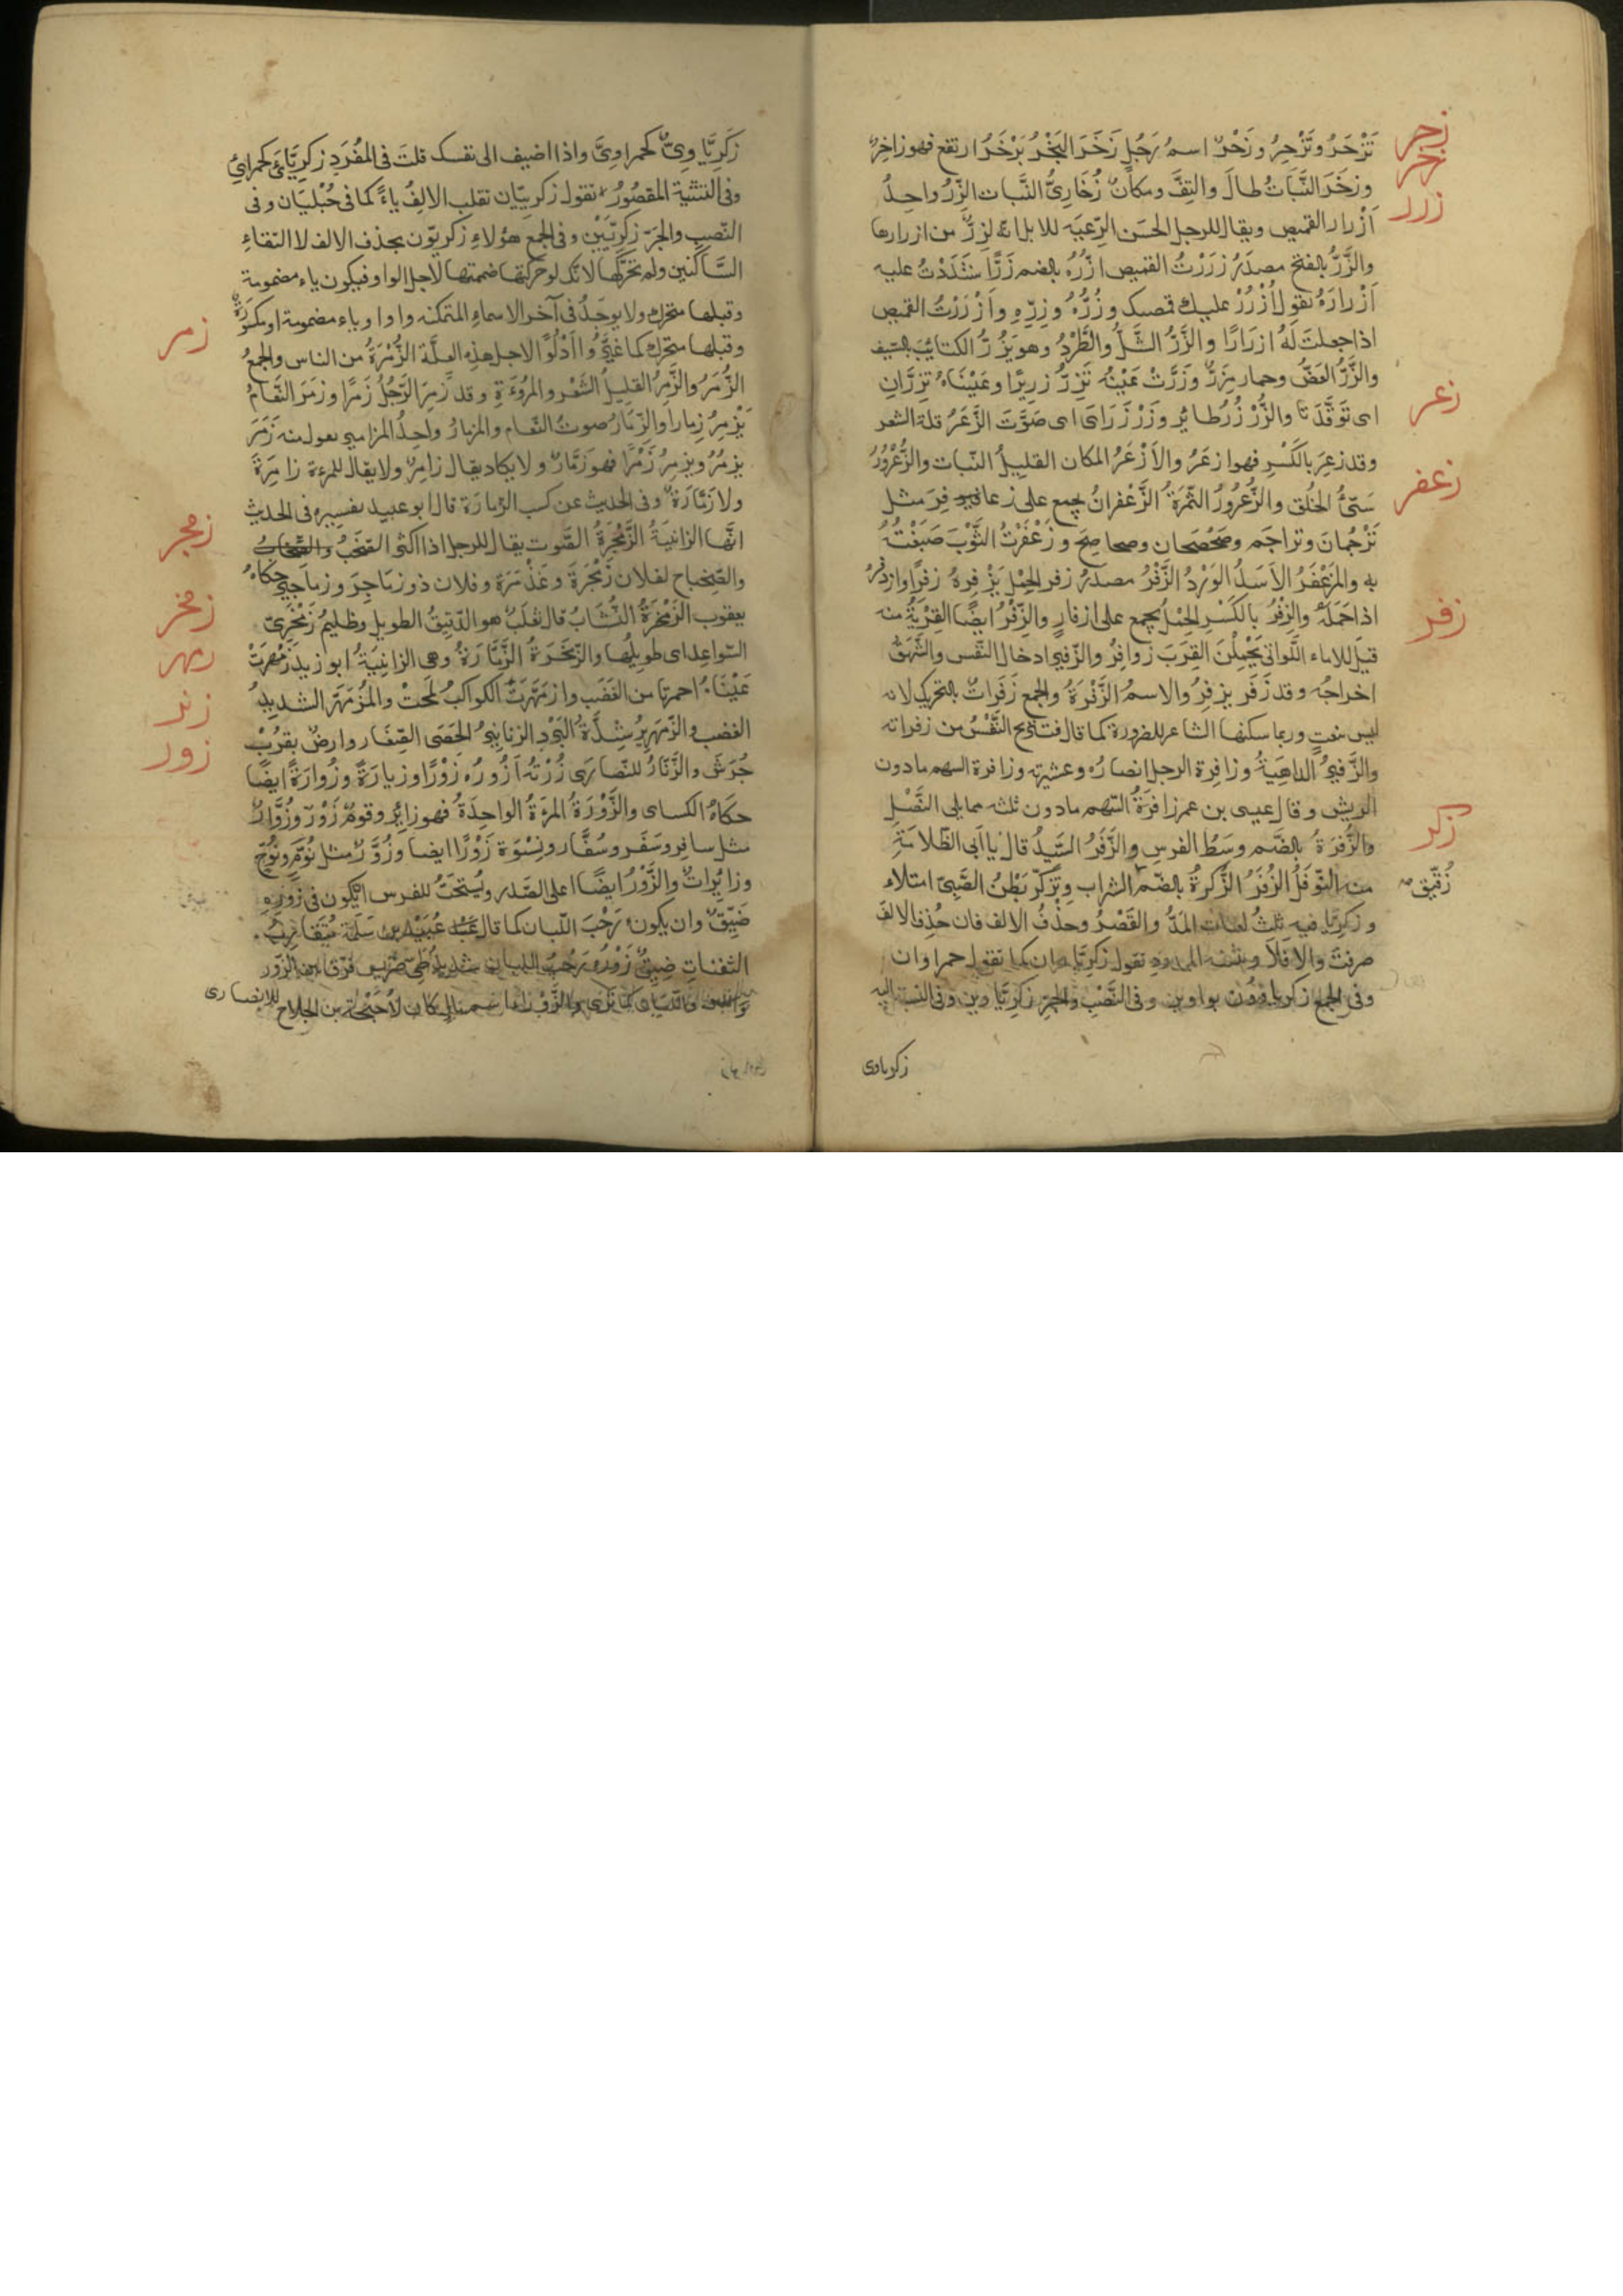 زحر
تَزْحَرُ وتَزْحِرُ وزَحْرٌ اسمُ رَجُلٍ زَخَرَ البَحْرُ يَزْخَرُ ارتفع فهو زاخِرٌ
زخر
وزخَرَ النَّبَاتُ طالَ والتِفَّ ومكانٌ زُخَارِىُّ النَّبات الزّرُّ واحِدُ
زرر
اَزْرار القميص ويقال للرجل الحسَن الرِّعيَه للابل انّه لزِرٌّ من ازرارها
والزَّرُّ بالفتح مصدَرُ زرَرْتُ القميص ازُرُّه بالضم زَرًّا شَدَدْتُ عليه
اَزْرارَهُ تقول اُزْرُرْ عليك قميصك وزُرَّهُ وزِرِّهِ وَاَزْرَرْتُ القميص
اذا جعلتَ لَهُ ازرَارًا والزَّرُّ الشَّلُّ والطَّرْدُ وهو يَزُرُّ الكتائِبَ بالسّيف
والزَّرُّ العَضُّ وحمار مِزَرٌّ وزَرَّتْ عَيْنُه تَزِرُّ زرِيرًا وعَيْنَاهُ تزِرَّانِ
زعر
اى توَقَّدَتا والزُّرْزُرُ طائِر وزَرْزَرَ اى صَوَّتَ الزَّعَرُ قلة الشعر
وقد زعِرَ بالكَسْرِ فهو ازعَرُ والاَزْعَرُ المكان القليلُ النّبات والزُّعْرُورُ
زعفر
سَيّئُ الخلق والزُّعْرُورُ الثّمَرَةُ الزَّعْفرانُ يجمع على زعافِرَ مثل
تَرْجُمانَ وتراجَم وصَحْصَحان وصحاصِحَ وزَعْفَرْتُ الثَّوْبَ صَبَغْتُهُ
به والمزَعْفَرُ الاَسَدُ الوَرْدُ الزَّفْرُ مصدَرُ زفر الحِمْل يَزْفِرهُ زفرًا وازدفرهُ
زفر
اذا حَمَلَهُ والزِفْرُ بالكَسْرِ الحِمْلُ يجمع على ازفارٍ والزِّفْرُ ايضًا القِرْبَةُ منه
قيل للاماء اللَّواتى يَحْمِلْنَ القِرَبَ زوافِرُ والزّفير ادخال النّفَس والشَّهيقُ
اخراجُه وقد زَفَر يزفِرُ والاسمُ الزَّفْرَةُ والجمع زَفَراتٌ بالتحريك لانه
ليس بنعتٍ وربما سكنها الشاعر للضرورة كما قال فتستريح النَّفْسُ من زفراته
والزَّفيرُ الداهِيَةُ وزافِرة الرجل انصارُه وعشيرته وزافرة السهم مادون
الريش وقال عيسى بن عمر زافرَةُ السّهم مادون ثلثه مما يلى النَّصْلِ
زكر
والزُّفرَةُ بالضَّم وسَطُ الفرس والزُّفَرُ السَّيدُ قال يأبَى الظُّلامَةَ
منه النَّوفَلُ الزُّفَرُ الزُّكرةُ بالضّم للشراب وتَزكّرَ بَطْنُ الصَّبِىّ امتلاء
زُقَيْقٌ
وزكرِيّا فيه ثلثُ لغات المَدُّ والقَصْرُ وحذْفُ الالف فان حذِفت الالفَ
صرفتَ والا فَلَا وتثنية الممدودِ تقول زكرِيّاوان كما تقول حمراوان
وفى الجمع زكرياوون بواوين وفى النَّصْبِ والجرِّ زكرِيّاوين وفى النسبة اليه
زكرياوى
زَكَرِيَّاوِىٌّ كحمراوِىّ واذا اضيف الى نفسك قلتَ فى المفْرَدِ زكرِيَّاءىَ كحمراءِى
وفى التثنية المقصُور تقول زكريَيان تقلب الالِفُ ياءً كما فى حُبْليَان وفى
النّصبِ والجرّ زكرِيَيَيْنِ وفى الجمع هؤلاءِ زكريّون بحذف الالف لالتقاءِ
السَّاكنين ولم تحرّكها لانّك لو حركتها ضممتها لاجل الواو فيكون ياء مضمومة
وقبلها متحرك ولا يوجَدُ فى آخر الاسماءِ المتمكنه واو او ياء مضمومة او مكسورَةٌ
زمر
وقبلها متحرك كما غيّروا اَدْلُوًا لاجل هذِهِ العلَّة الزُّمْرَةُ من الناس والجمعُ
الزُّمَرُ والزَّمِرُ القليلُ الشَعْر والمرُوءَةِ وقد زمِرَ الرَّجُلُ زَمَرًا وزمَرَ النَّعَامُ
يَزْمِرُ زِمارا والزِّمَارُ صوتُ النّعام والمزمارُ واحِدُ المزامير تقول منه زَمَرَ
يزمُرُ ويزمِرُ زَمْرًا فهو زمَّارٌ ولا يكاد يقال زامِرٌ ولا يقال للمرءة زامِرَةٌ
ولا زمَّارَةٌ وفى الحديث عن كسب الزّمارَة قال ابو عبيد تفسيره فى الحديث
زمجر
انَّها الزانيَةُ الزَّمْجَرَةُ الصَّوت يقال للرجل اذا اكثر الصّخَبَ
والصّياح لفلان زَمْجَرَةَ وغَذْمَرَة وفلان ذو زماجِرَ وزماجيرَ حكاهُ
زمخر
يعقوب الزَّمْخَرَةُ النُّشّابُ قال ثعلَبُ هو الدّقيقُ الطويل وظليمُ زَمْخَرِىّ
السّواعِد اى طويلُها والزَّمْخَرَةُ الزَّمَّارَةُ وهى الزانِيَةُ ابو زيد زَمْهرَتْ
زمهر
عَيْنَاهُ احمرتا من الغضَب وازمَهَرَّت الكواكبُ لَمَحتْ والمُزمَهِرّ الشديدُ
زنر
الغضب والزّمهريرُ شدَّةُ البَرْدِ الزنانِيرُ الحَصَى الصِّغار وارضٌ بقرُبِ
زور
جُرَش والزَّنّارُ للنّصارَى زُرْتُه اَزُورُه زَوْرًا وزيارَةً وزُوارَةً ايضًا
حكاهُ الكساى والزَّوْرَةُ المرّةُ الواحِدَةُ فهو زائِرٌ وقومٌ زَوْرٌ وزُوَّارٌ
مثل سافِر وسَفْر وسُفَّار ونِسْوَة زَوْرًا ايضا وزُوَّرٌ مثل نُوَّمٍ ونُوَّحٍ
وزائِراتٌ والزَّوْرُ ايضًا اعلى الصّدر ويُستحَبُّ للفرس ان يكون فى زَوْرِهِ
ضَيّقٌ وان يكون رَحْبَ اللّبان كما قال عَبْد بن سَلَمَة مُتقَاربُ
الثفناتِ ضيقٌ زَوْرُه رَحْبُ اللبان شديدُ طَىِّ ضَريس فرّق بين الزَّور
واللبان كما ترى والزَّوْراءُ اسم مال كان لاُحَيْحَة بن الجلاح الانصارى